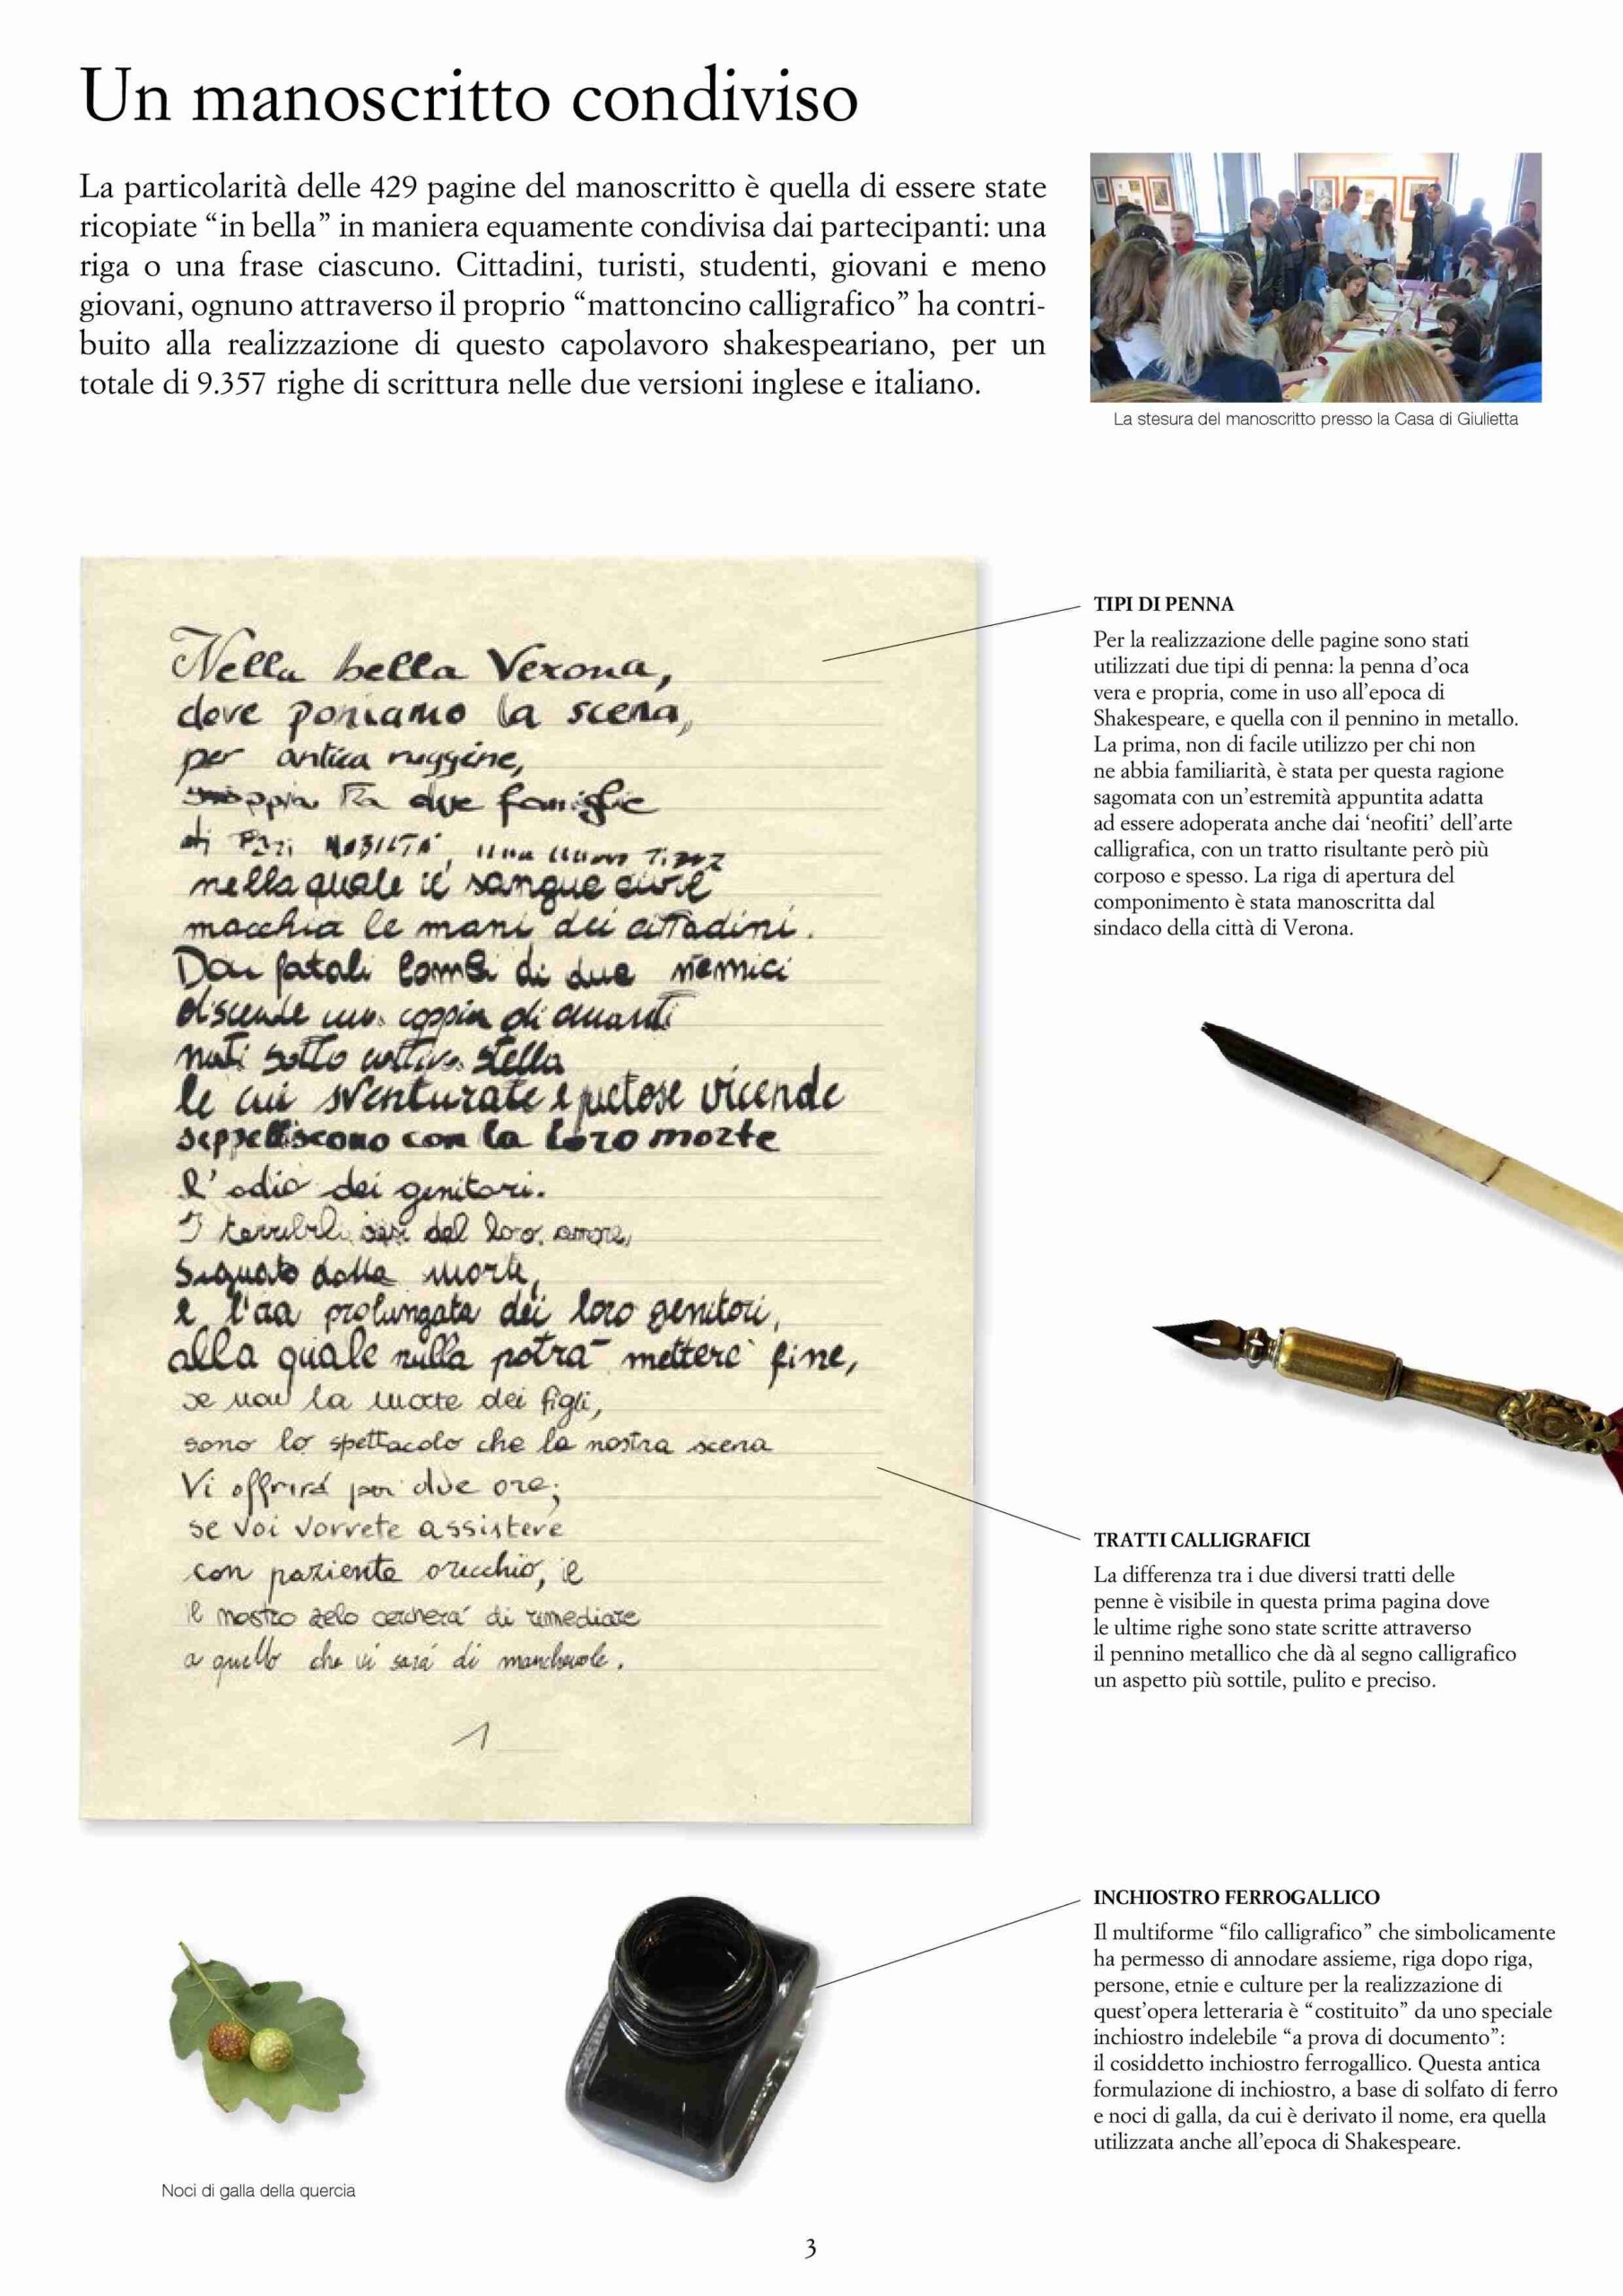 Un manoscritto condiviso
La particolarità delle 429 pagine del manoscritto è quella di essere state
ricopiate “in bella” in maniera equamente condivisa dai partecipanti: una
riga o una frase ciascuno. Cittadini, turisti, studenti, giovani e meno
giovani, ognuno attraverso il proprio “mattoncino calligrafico” ha contri-
buito alla realizzazione di questo capolavoro shakespeariano, per un
totale di 9.357 righe di scrittura nelle due versioni inglese e italiano.
La stesura del manoscritto presso la Casa di Giulietta
Nella bella Verona,
dove poniamo la scena,
per antica ruggine,
fra due famiglie
di pari NOBILTÀ, una nuova
nella quale il sangue civil
macchia le mani dei cittadini.
Dai fatali lombi di due nemici
discende una coppia di amanti
nati sotto cattiva stella
le cui sventurate e pietose vicende
seppelliscono con la loro morte
l'odio dei genitori.
I terribili casi del loro amore,
segnato dalla morte,
e l'ira prolungata dei loro genitori,
alla quale nulla potrà mettere fine,
se non la morte dei figli,
sono lo spettacolo che la nostra scena
Vi offrirá per due ore;
se voi vorrete assistere
con paziente orecchio, il
il nostro zelo cercherà di rimediare
a quello che vi sará di manchevole.
1
TIPI DI PENNA
Per la realizzazione delle pagine sono stati
utilizzati due tipi di penna: la penna d’oca
vera e propria, come in uso all’epoca di
Shakespeare, e quella con il pennino in metallo.
La prima, non di facile utilizzo per chi non
ne abbia familiarità, è stata per questa ragione
sagomata con un’estremità appuntita adatta
ad essere adoperata anche dai ‘neofiti’ dell’arte
calligrafica, con un tratto risultante però più
corposo e spesso. La riga di apertura del
componimento è stata manoscritta dal
sindaco della città di Verona.
TRATTI CALLIGRAFICI
La differenza tra i due diversi tratti delle
penne è visibile in questa prima pagina dove
le ultime righe sono state scritte attraverso
il pennino metallico che dà al segno calligrafico
un aspetto più sottile, pulito e preciso.
INCHIOSTRO FERROGALLICO
Il multiforme “filo calligrafico” che simbolicamente
ha permesso di annodare assieme, riga dopo riga,
persone, etnie e culture per la realizzazione di
quest’opera letteraria è “costituito” da uno speciale
inchiostro indelebile “a prova di documento”:
il cosiddetto inchiostro ferrogallico. Questa antica
formulazione di inchiostro, a base di solfato di ferro
e noci di galla, da cui è derivato il nome, era quella
utilizzata anche all’epoca di Shakespeare.
Noci di galla della quercia
3